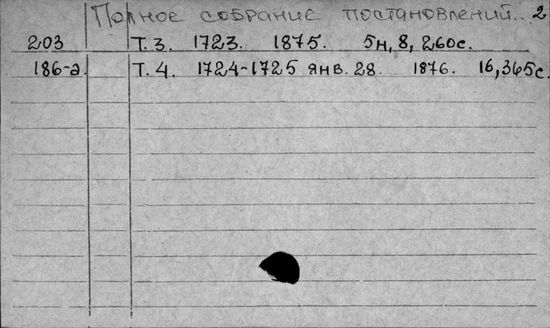 Полное собрание постановлений... 2
203 Т. 3. 1723. 1875. 5н, 8, 260с.
186-а. Т. 4. 1724-1725 янв. 28. 1876. 16, 365с.